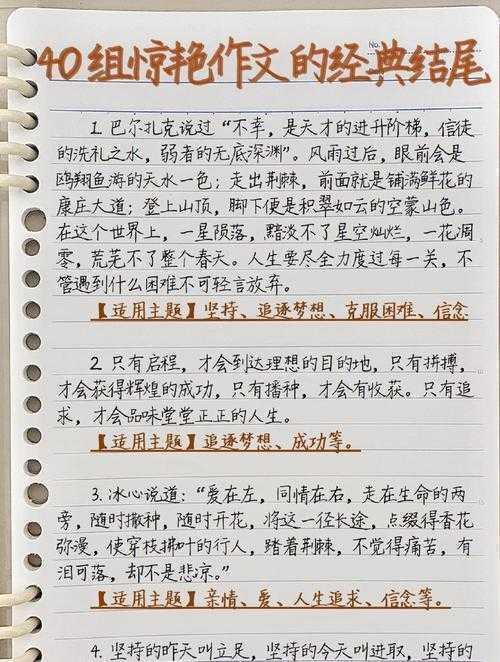 No.
40组惊艳作文的经典结尾
1. 巴尔扎克说过“不幸，是天才的进升阶梯，信徒
的洗礼之水，弱者的无底深渊”。风雨过后，眼前会是
鸥翔鱼游的天水一色；走出荆棘，前面就是铺满鲜花的
康庄大道；登上山顶，脚下便是积翠如云的空蒙山色。
在这个世界上，一星陨落，黯淡不了星空灿烂，一花凋
零，荒芜不了整个春天。人生要尽全力度过每一关，不
管遇到什么困难不可轻言放弃。
【适用主题】坚持、追逐梦想、克服困难、信念
2. 只有启程，才会到达理想的目的地，只有拼搏，
才会获得辉煌的成功，只有播种，才会有收获。只有追
求，才会品味堂堂正正的人生。
【适用主题】追逐梦想、成功等。
3. 冰心说道：“爱在左，同情在右，走在生命的两
旁，随时撒种，随时开花，将这一径长途，点缀得香花
弥漫，使穿枝拂叶的行人，踏着荆棘，不觉得痛苦，有
泪可落，却不是悲凉。”
【适用主题】亲情、爱、人生追求、信念等。
4. 坚持的昨天叫立足，坚持的今天叫进取，坚持的